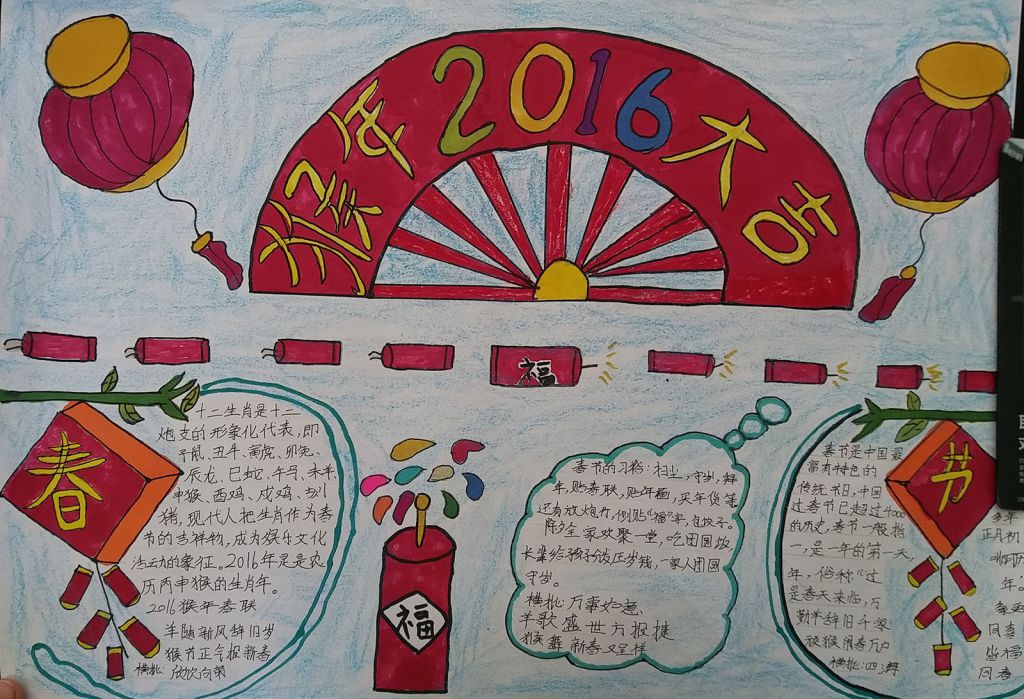 猴年2016大吉
福
春
十二生肖是十二
炮支的形象化代表,即
子鼠、丑牛、寅虎、卯兔、
辰龙、巳蛇、午马、未羊、
申猴、酉鸡、戌鸡、
猪,现代人把生肖作为春
节的吉祥物,成为娱乐文化
活动的象征。2016年是是农
历丙申猴的生肖年。
2016猴年春联
羊随新风辞旧岁
猴节正气报新春
横批:欣欣向荣
福
春节的习俗:扫尘,守岁,
年,贴春联,贴年画,买年货等
还有放炮竹,倒贴"福"字,包饺子。
除夕全家欢聚一堂,吃团圆饭
长辈给孩子饭压岁钱,一家人团圆
守岁。
横批:万事如意
羊歌盛世方报捷
猴舞新春又呈祥
节
春节是中国最
富有特色的
传统节日,中国
过春节已超过4000
的历史,春节一般指
一,是一年的第一天,
年,俗称"过
是春天来临,万
勤羊辞旧千家
横批:四海
正月初
年。
同喜
皆福
同春